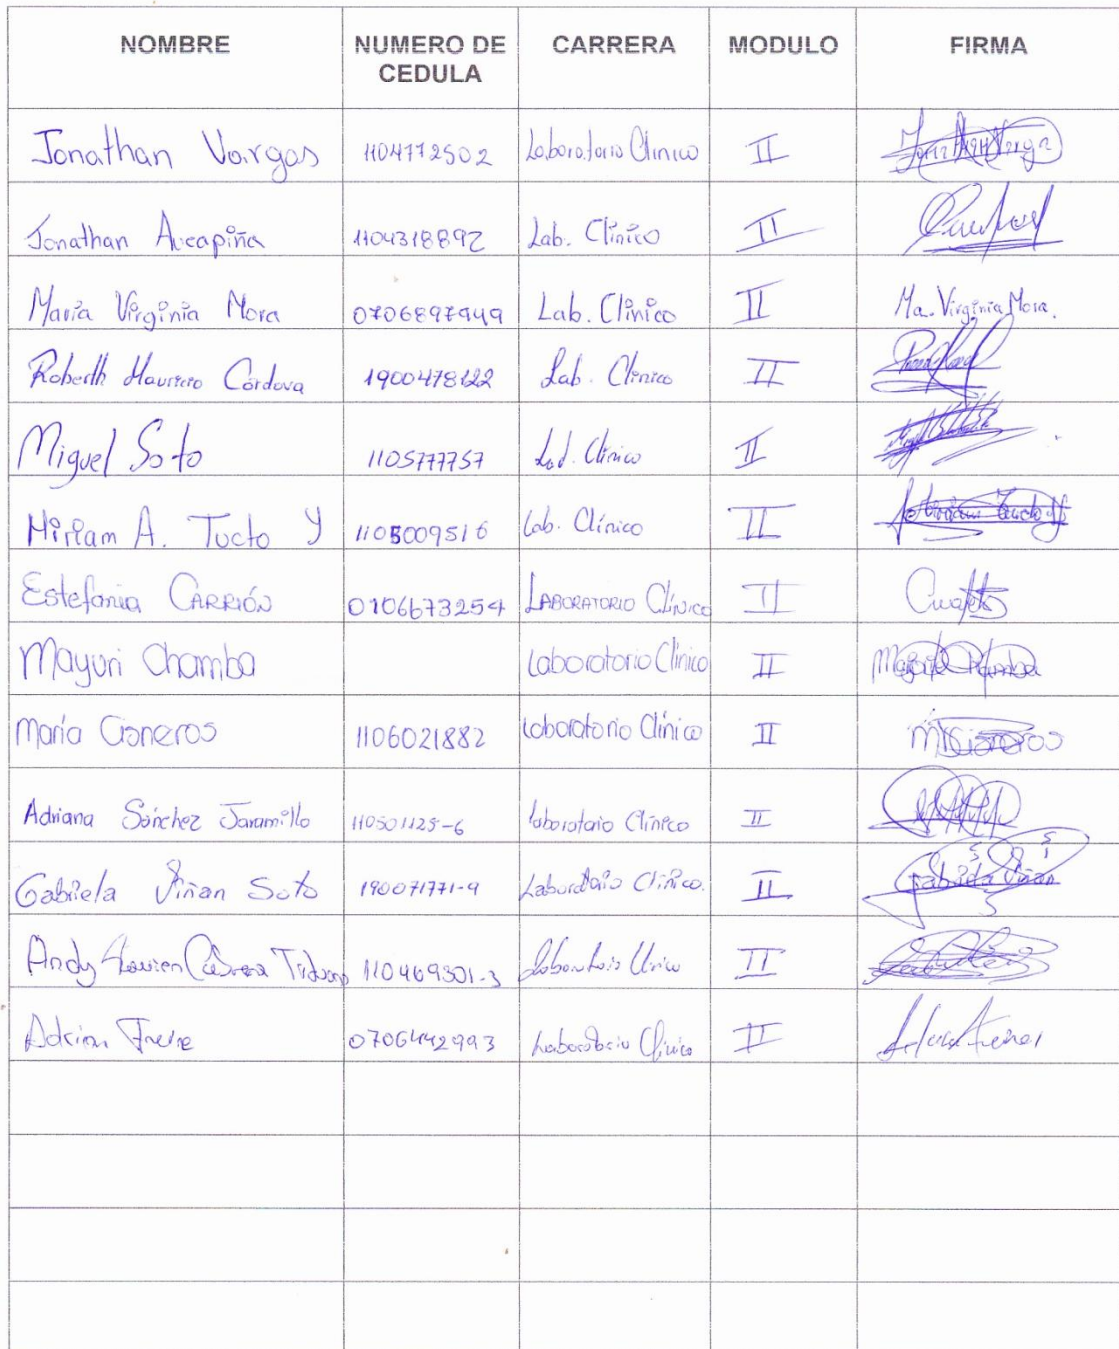 NOMBRE NUMERO DE CEDULA CARRERA MODULO FIRMA
Jonathan Vargas 1104772502 Laboratorio Clinico II
Jonathan Aucapiña 1104318892 Lab. Clínico II
María Virginia Mora 0706897949 Lab. Clínico II Ma. Virginia Mora.
Roberth Mauricio Córdova 1900478122 Lab. Clínico II
Miguel Soto 1105777757 Lab. Clínico II
Miriam A. Tucto Y 1105009516 Lab. Clínico II
Estefania CARRIÓN 0106673254 LABORATORIO Clínico II
Mayuri Chamba Laboratorio Clínico II
María Cisneros 1106021882 Laboratorio Clínico II MCisneros
Adriana Sánchez Jaramillo 110501125-6 laboratorio Clínico II
Gabriela Viñan Soto 190071771-9 Laboratorio Clínico. II Gabriela Viñan
Andy Cabrera 110469301-3 Laboratorio Clínico II
Adrian Freire 0706442993 Laboratorio Clínico II